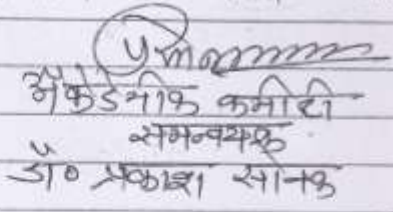 अॅकेडेमीक कमीटी
समन्वयक
डॉ० प्रकाश सोनक